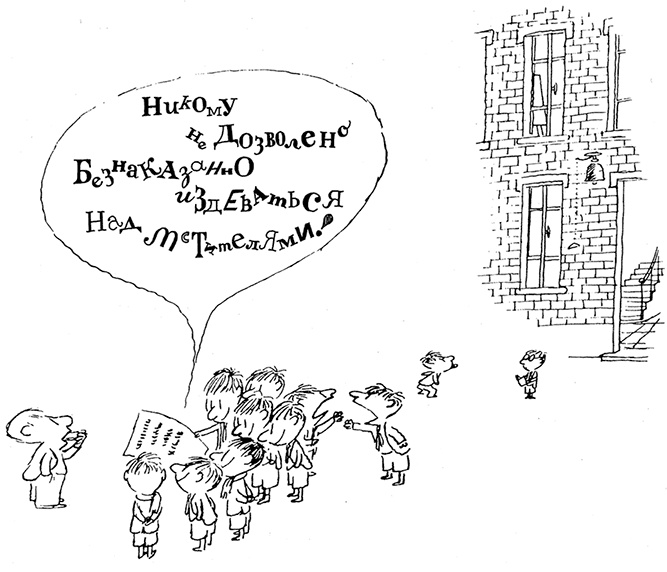 Никому
не Дозволено
Безнаказанно
издеваться
Над мстителями!